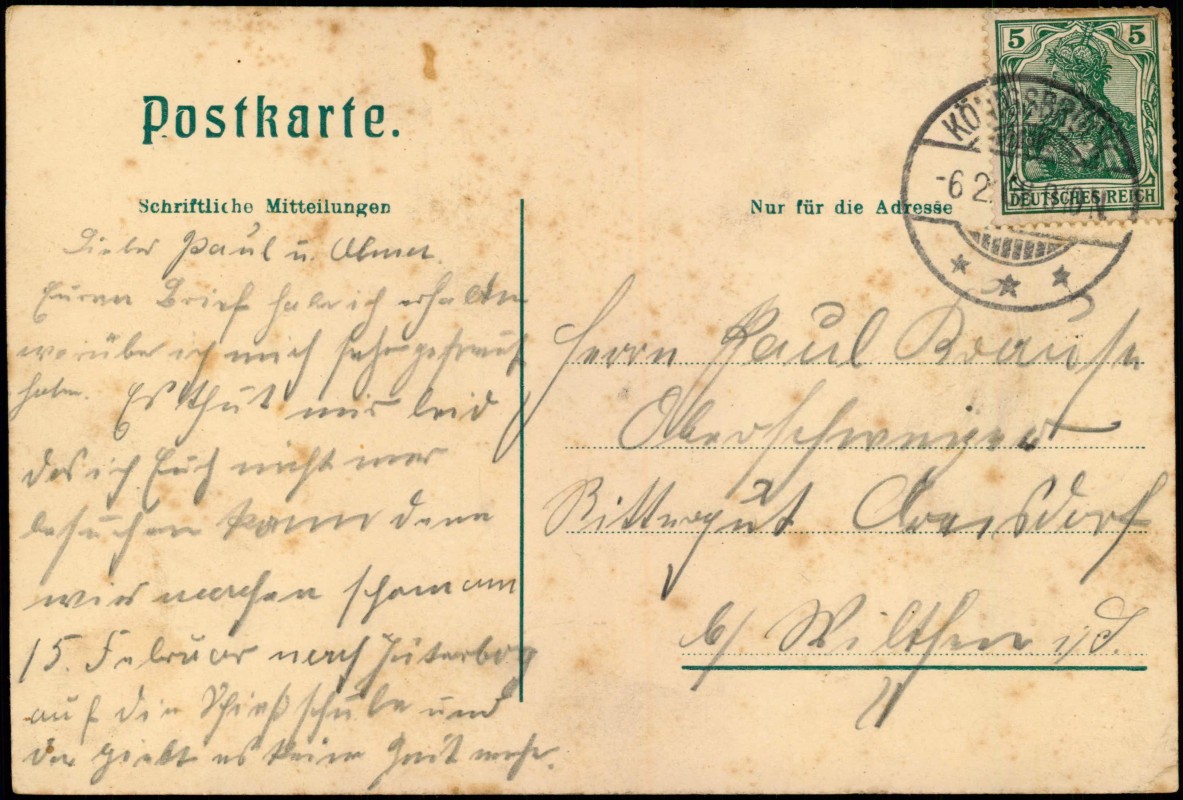 Postkarte.
Schriftliche Mitteilungen
Nur für die Adresse
5 5
DEUTSCHES REICH
-6 2
Lieber Paul u.
Euren Brief habe ich erhalten
worüber ich mich sehr gefreut
habe. Es thut mir leid
das ich Euch nicht mer
besuchen kann denn
wir machen schon am
15. Februar nach Jüterbog
auf die Schießschule und
da giebt es keine Zeit mehr.
Herrn Paul Krause
Oberschweizer
Rittergut
b/ Wilthen i/S.